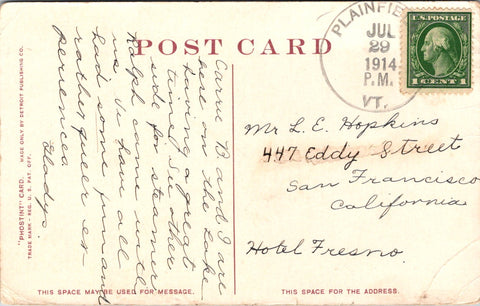 POST CARD
PLAINFIE
JUL
29
1914
P.M.
VT.
U.S. POSTAGE
1 CENT 1
Carrie B and I are
here on the Lake
having a great
time. Its other
side for steamer
Ralph came with
us. We have all
had some fun and
rather queer ex-
periences
Gladys.
Mr L. E. Hopkins
447 Eddy Street
San Francisco
California
Hotel Fresno.
"PHOSTINT" CARD. MADE ONLY BY DETROIT PUBLISHING CO.
TRADE MARK - REG. U. S. PAT. OFF.
THIS SPACE MAY BE USED FOR MESSAGE.
THIS SPACE FOR THE ADDRESS.